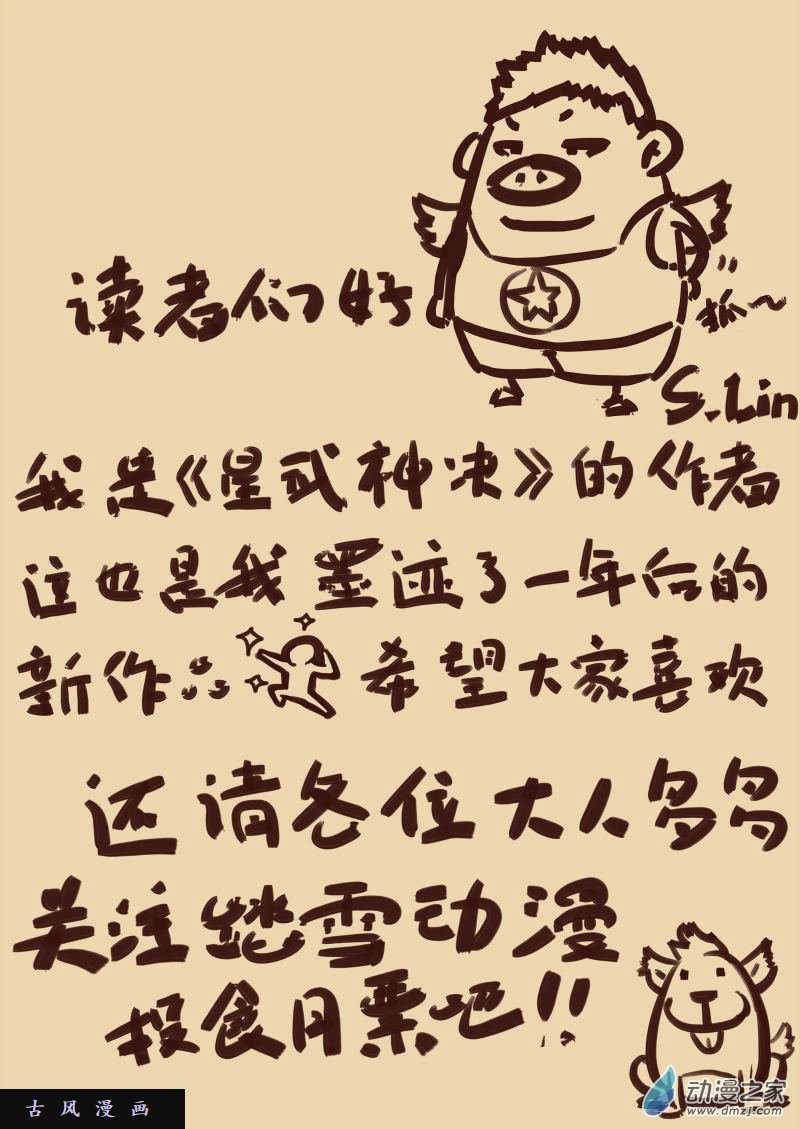 读者们好
抓~
S.Lin
我是《星武神决》的作者
这也是我墨迹了一年后的
新作品 希望大家喜欢
还请各位大人多多
关注踏雪动漫
投食月票吧!!
古风漫画
动漫之家
www.dmzj.com